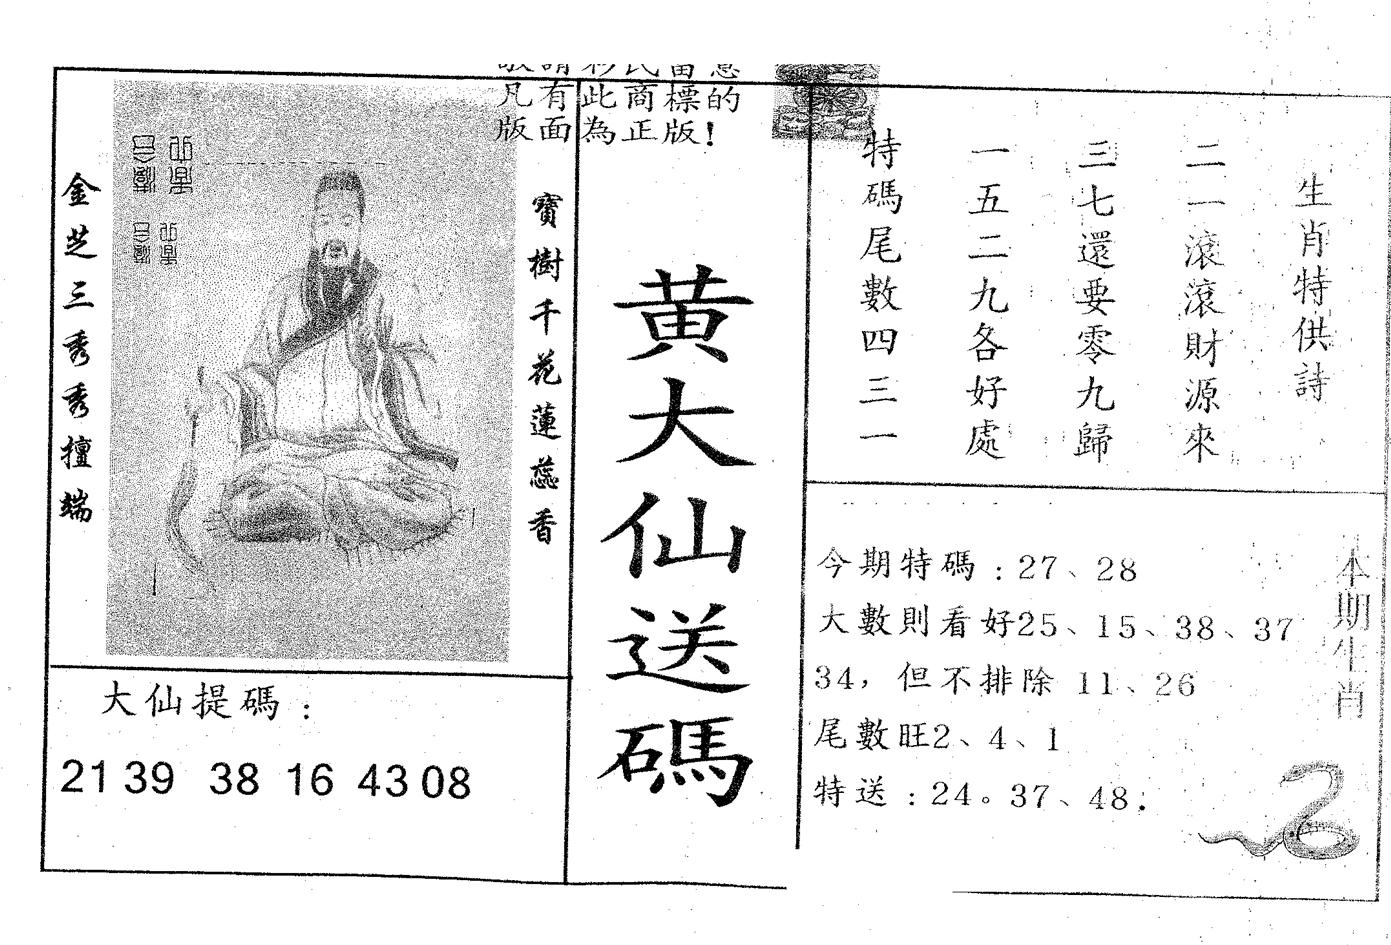 敬請彩民留意
凡有此商標的
版面為正版!
金芝三秀秀擅端
寶樹千花蓮蕊香
黃大仙送碼
大仙提碼：
21 39 38 16 43 08
生肖特供詩
二一滾滾財源來
三七還要零九歸
一五二九各好處
特碼尾數四三一
今期特碼：27、28
大數則看好25、15、38、37
34，但不排除 11、26
尾數旺2、4、1
特送：24。37、48.
本期生肖